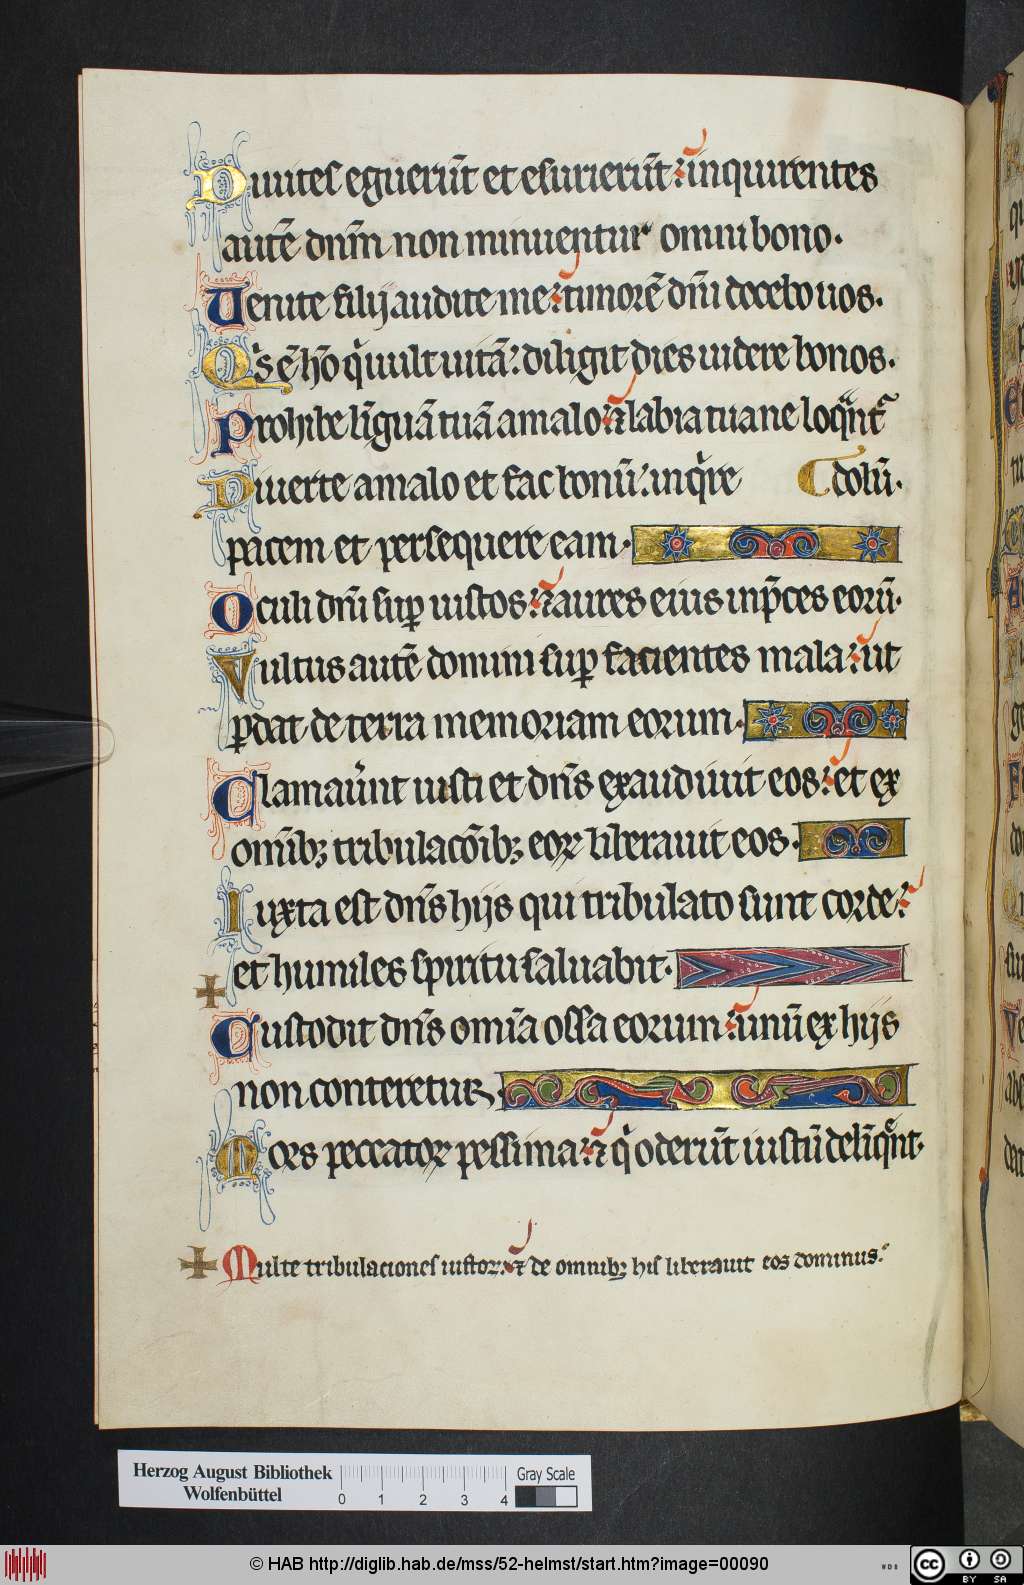 Diuites eguerūt et esurierūt: inquirentes
autē dnm̄ non minuentur omni bono.
Uenite filij audite me: timorē dnī docebo uos.
Qis ē hō qi uult uitā: diligit dies uidere bonos.
Prohibe līguā tuā a malo: ⁊ labia tua ne loqnt
Diuerte a malo et fac bonū: inqire dolū.
pacem et persequere eam.
Oculi dnī suꝑ iustos: ⁊ aures eius in p̄ces eorū.
Vultus autē domini suꝑ facientes mala: ut
ꝑdat de terra memoriam eorum.
Clamaur̄nt iusti et dns̄ exaudiuit eos: et ex
omībꝫ tribulacōibꝫ eoꝝ liberauit eos.
Iuxta est dns̄ hijs qui tribulato sunt corde:
et humiles spiritu saluabit.
Custodit dns̄ omīa ossa eorum: unū ex hijs
non conteretur.
Mors peccatoꝝ pessima: ⁊ qi oderūt iustū delīqnt.
Multe tribulaciones iustoꝝ: ⁊ de omnibꝫ his liberauit eos dominus.
Herzog August Bibliothek
Wolfenbüttel
0 1 2 3 4
Gray Scale
© HAB http://diglib.hab.de/mss/52-helmst/start.htm?image=00090
WDB
cc BY SA